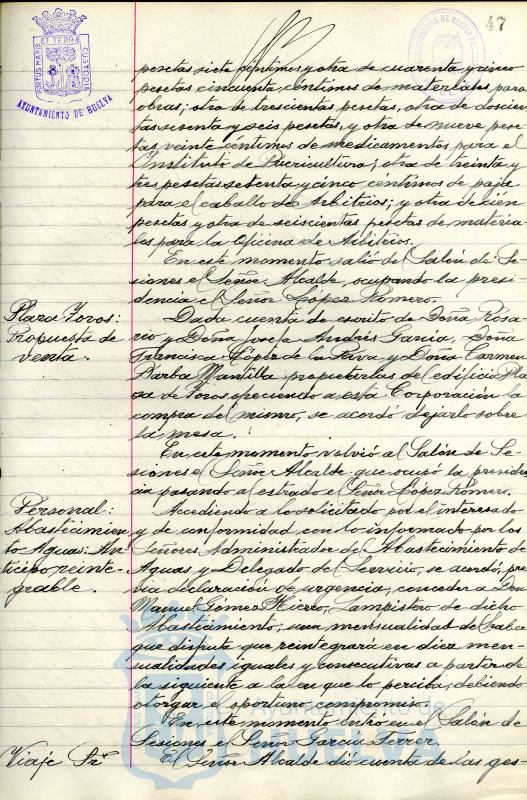 47
PORTUS MARIS ET TERRÆ CUSTODIA
AYUNTAMIENTO DE HUELVA
pesetas siete céntimos y otra de cuarenta y cinco
pesetas cincuenta céntimos de materiales para
obras; otra de trescientas pesetas, otra de doscien
tas sesenta y seis pesetas, y otra de nueve pese
tas veinte céntimos de medicamentos para el
Instituto de Puericultura; otra de treinta y
tres pesetas setenta y cinco céntimos de paja
para el caballo de Arbitrios; y otra de cien
pesetas y otra de seiscientas pesetas de materia
les para la Oficina de Arbitrios.
En este momento salió del Salón de Se-
siones el Señor Alcalde, ocupando la presi
dencia el Señor López Romero.
Plaza Toros:
Propuesta de
venta.
Dada cuenta de escrito de Doña Rosa-
rio y Doña Josefa Andrés García, Doña
Francisca López de la y Doña Carmen
Barba Mantilla propietarias del edificio Pla
za de Toros ofreciendo a esta Corporación la
compra del mismo, se acordó dejarlo sobre
la mesa.
En este momento volvió al Salón de Se-
siones el Señor Alcalde que ocupó la presiden
cia pasando al estrado el Señor López Romero.
Personal:
Abastecimien
to Aguas: An
ticipo reinte-
grable.
Accediendo a lo solicitado por el interesado
y de conformidad con lo informado por los
Señores Administrador de Abastecimiento de
Aguas y Delegado del Servicio, se acordó, pre
via declaración de urgencia, conceder a Don
Manuel Gomez Hierro, Lampistero de dicho
Abastecimiento, una mensualidad del haber
que disfruta que reintegrará en diez men-
sualidades iguales y consecutivas a partir de
la siguiente a la en que lo perciba, debiendo
otorgar el oportuno compromiso.
En este momento entró en el Salón de
Sesiones el Señor García Ferrer.
Viaje Sr
El Señor Alcalde dió cuenta de las ges-
Ayuntamiento de
HUELVA